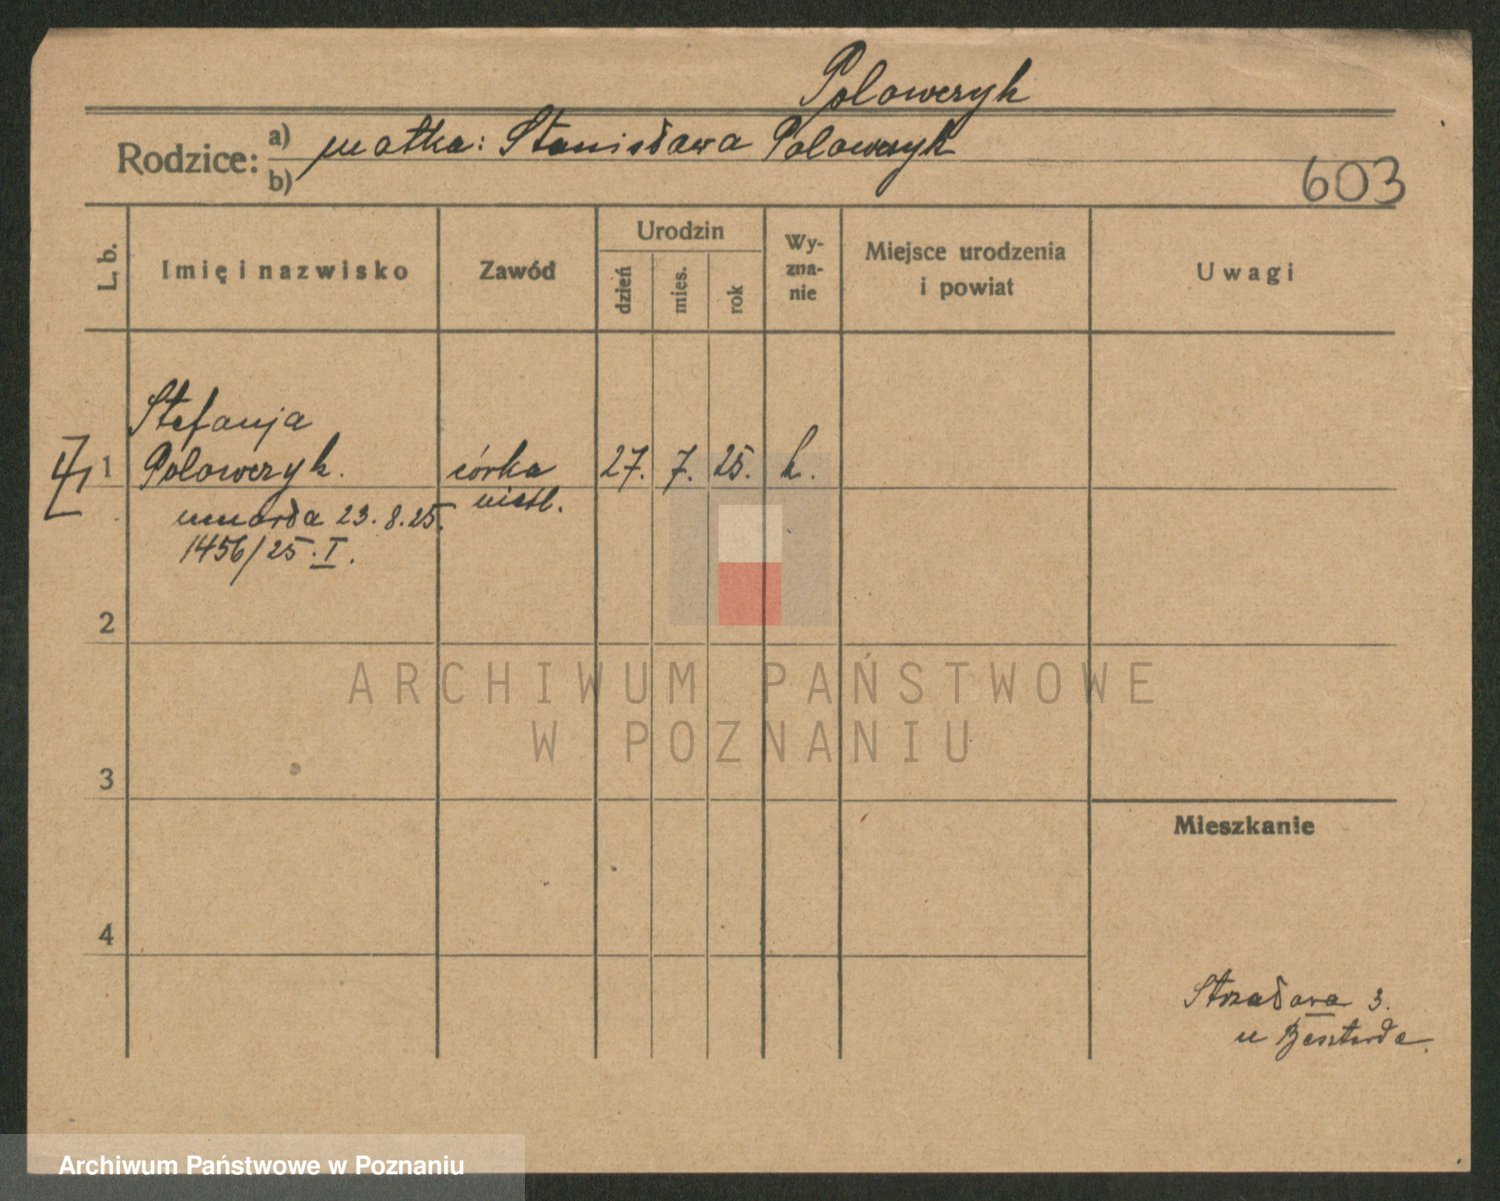 Polowczyk
Rodzice: a) matka: Stanisława Polowczyk
b)
603
L. b.
Imię i nazwisko
Zawód
Urodzin
dzień
mies.
rok
Wy-
zna-
nie
Miejsce urodzenia
i powiat
Uwagi
Stefanja
1 Polowczyk. córka 27. 7. 25. k.
nieśl.
umarła 23.8.25.
1456/25.I.
2
3
4
Mieszkanie
Strzałowa 3.
u
ARCHIWUM PAŃSTWOWE
W POZNANIU
Archiwum Państwowe w Poznaniu